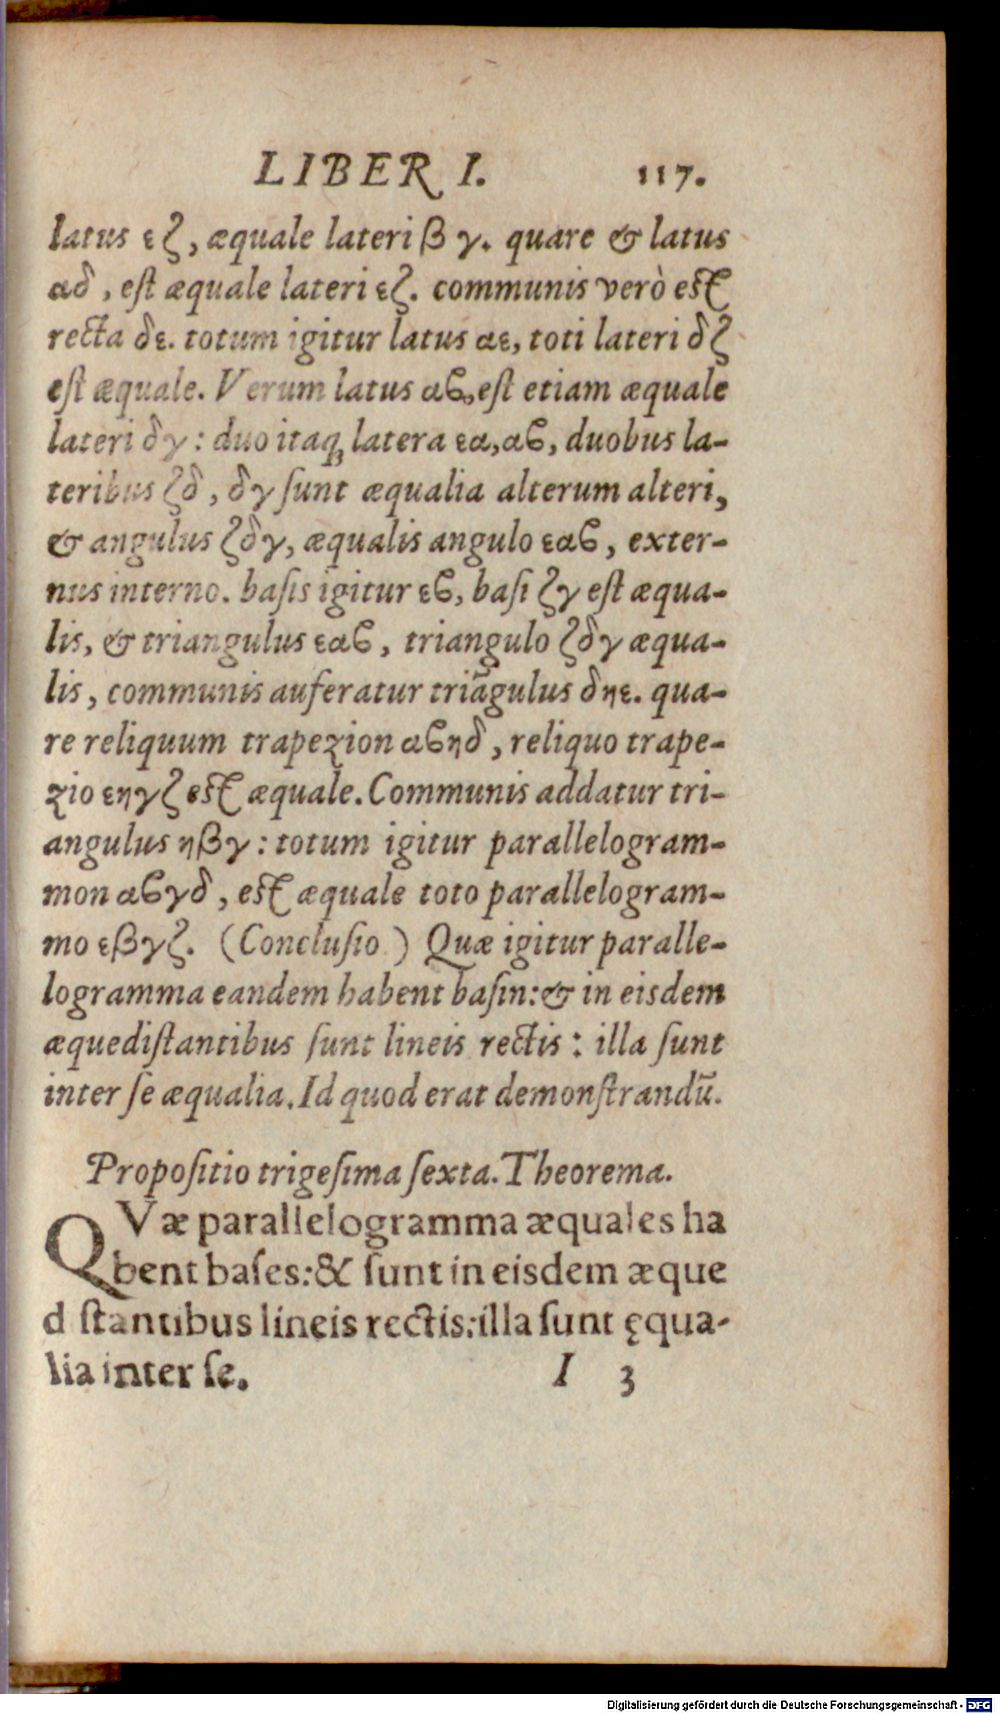 LIBER I. 117.
latus εζ, æquale lateri β γ. quare & latus
αδ, eſt æquale lateri εζ. communis verò eſt
recta δε. totum igitur latus αε, toti lateri δζ
eſt æquale. Verum latus αϐ, eſt etiam æquale
lateri δγ: duo itaqꝫ latera εα, αϐ, duobus la-
teribus ζδ, δγ ſunt æqualia alterum alteri,
& angulus ζδγ, æqualis angulo εαϐ, exter-
nus interno. baſis igitur εϐ, baſi ζγ eſt æqua-
lis, & triangulus εαϐ, triangulo ζδγ æqua-
lis, communis auferatur triãgulus δηε. qua-
re reliquum trapezion αϐηδ, reliquo trape-
zio εηγζ eſt æquale. Communis addatur tri-
angulus ηβγ: totum igitur parallelogram-
mon αϐγδ, eſt æquale toto parallelogram-
mo εβγζ. (Concluſio) Quæ igitur paralle-
logramma eandem habent baſin: & in eisdem
æquediſtantibus ſunt lineis rectis: illa ſunt
inter ſe æqualia. Id quod erat demonſtrandũ.
Propoſitio trigeſima ſexta. Theorema.
QVæ parallelogramma æquales ha
bent baſes: & ſunt in eisdem æque
d ſtantibus lineis rectis: illa ſunt ęqua-
lia inter ſe. I 3
Digitalisierung gefördert durch die Deutsche Forschungsgemeinschaft - DFG